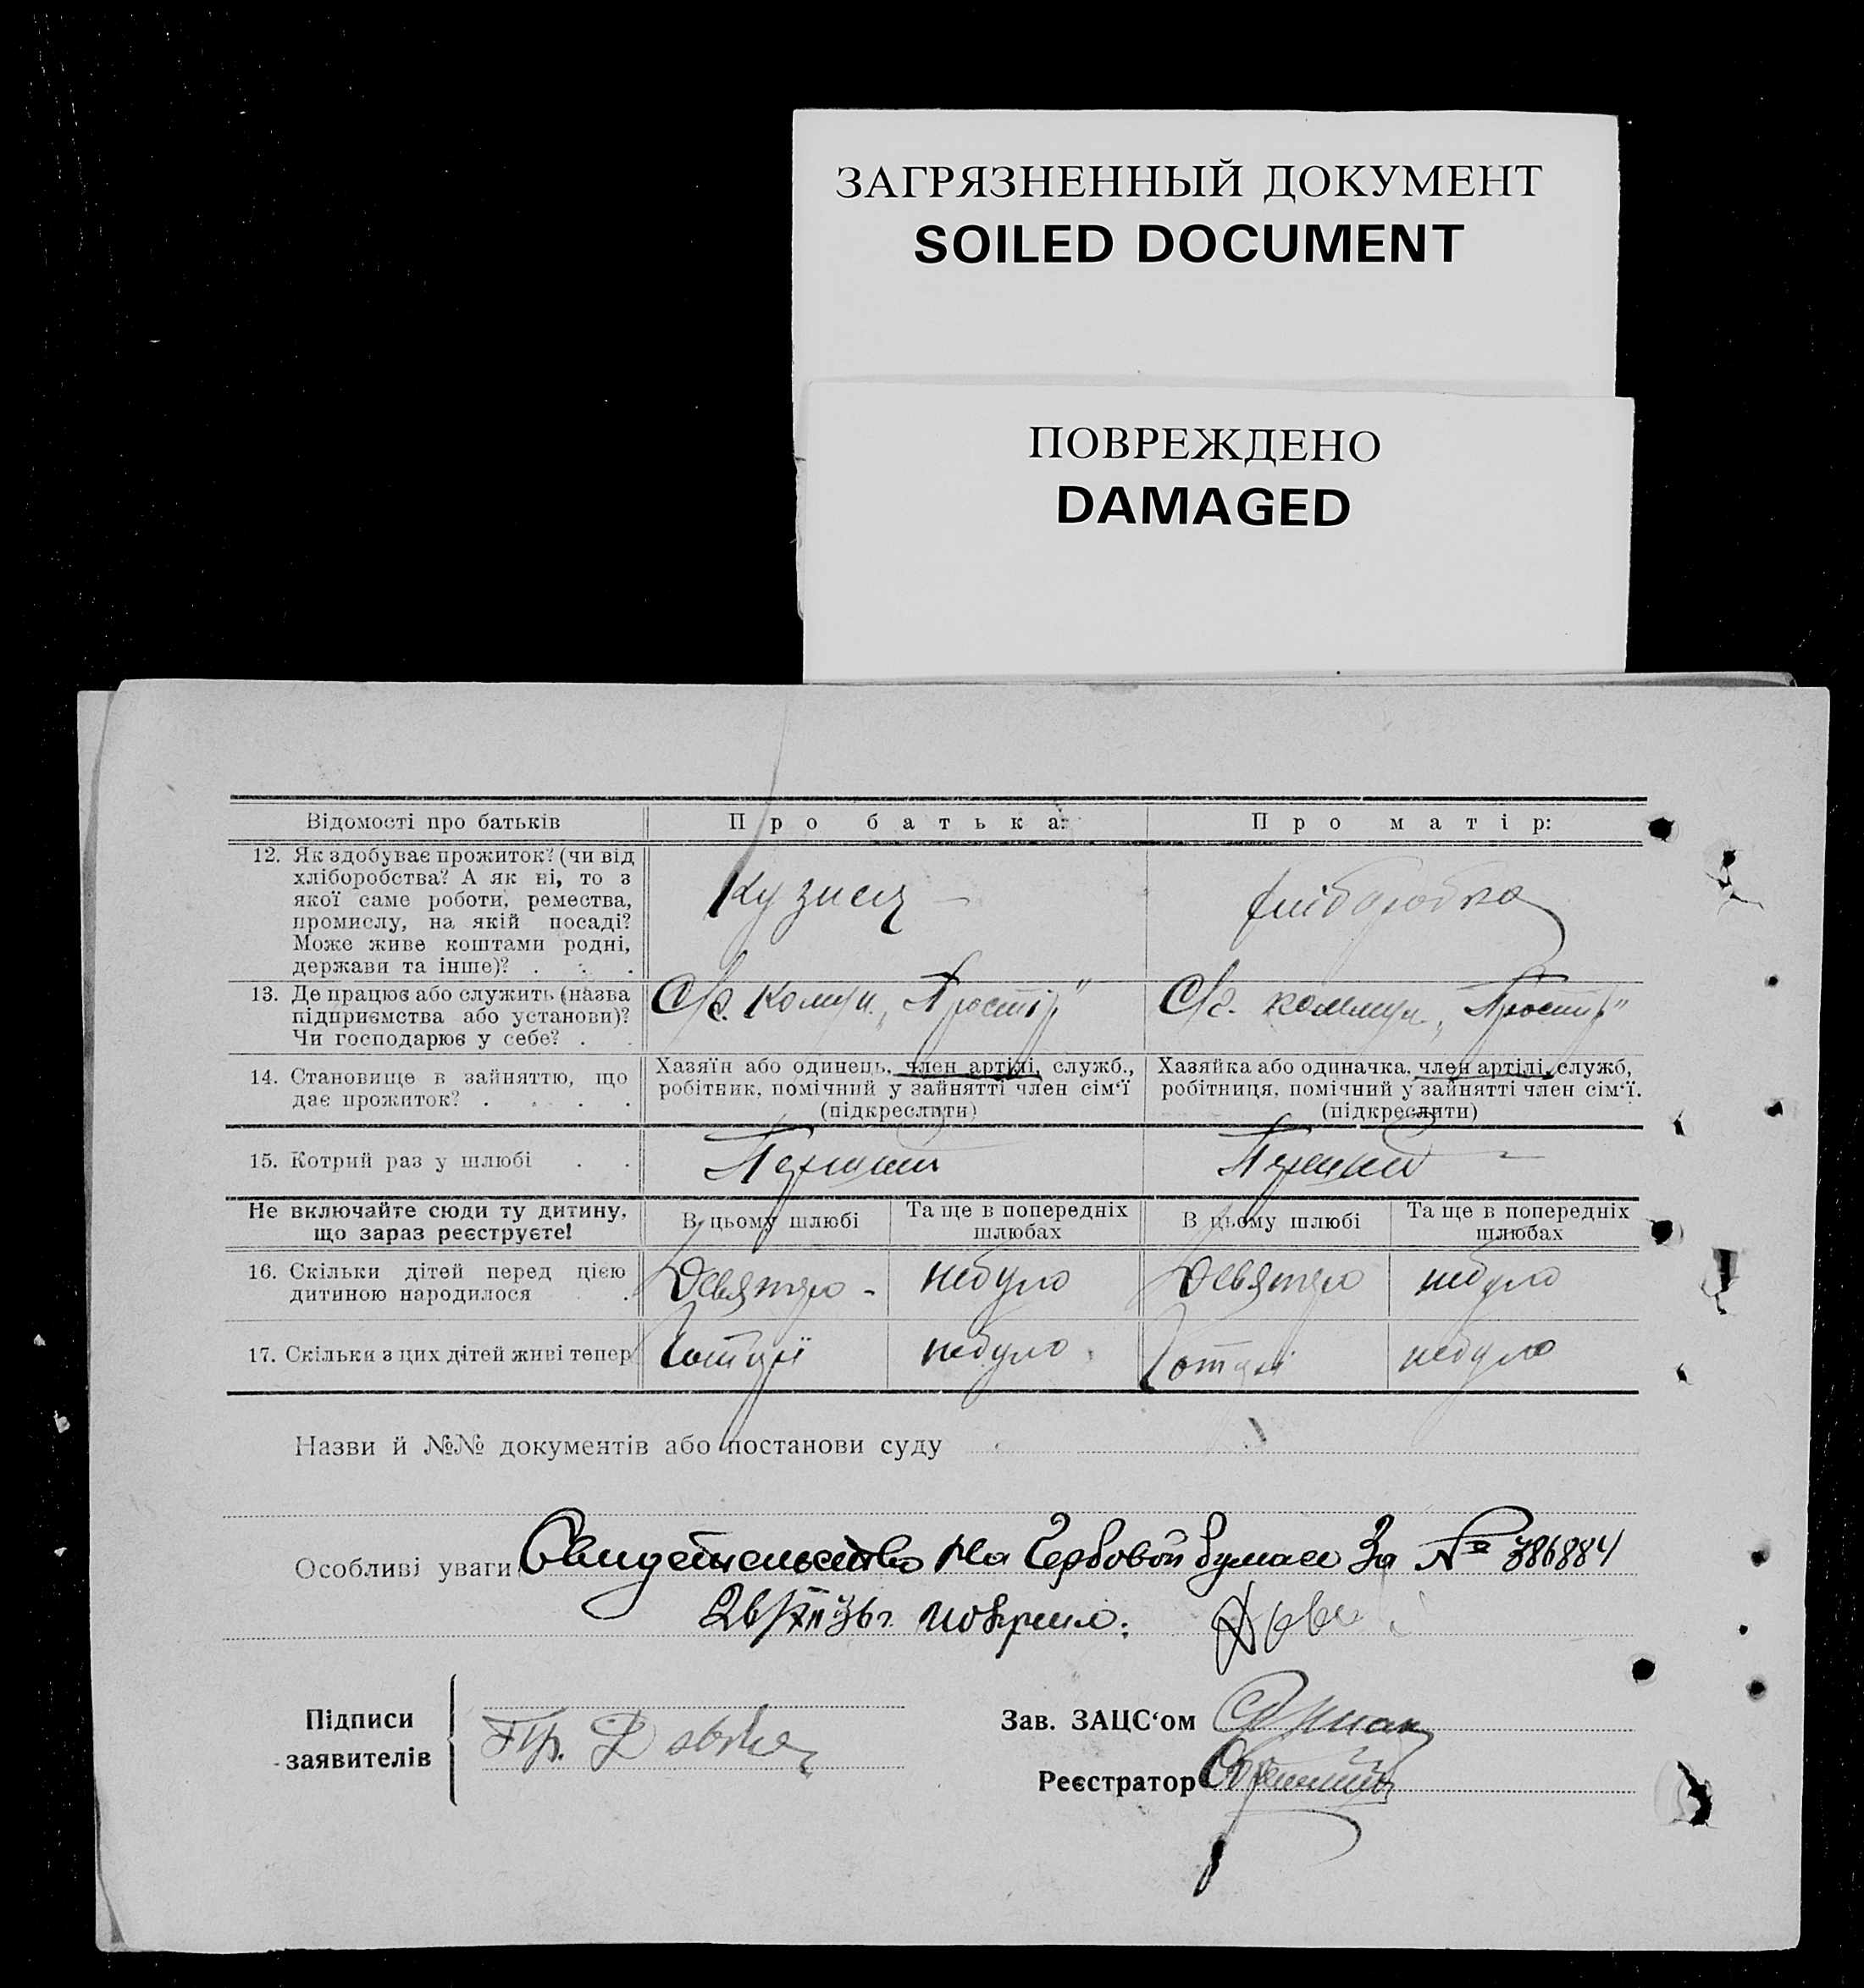 ЗАГРЯЗНЕННЫЙ ДОКУМЕНТ
SOILED DOCUMENT
ПОВРЕЖДЕНО
DAMAGED
Відомості про батьків
Про батька:
Про матір:
12. Як здобуває прожиток? (чи від
хліборобства? А як ні, то з
якої саме роботи, ремества,
промислу, на якій посаді?
Може живе коштами родні,
держави та інше)? . . .
хліборобка
13. Де працює або служить (назва
підприємства або установи)?
Чи господарює у себе? . .
С/г. Комун. „Простір"
С/г. коммун. „Простір"
14. Становище в зайняттю, що
дає прожиток? . . . .
Хазяїн або одинець, член артілі, служб.,
робітник, помічний у зайнятті член сім'ї
(підкреслити)
Хазяйка або одиначка, член артілі, служб,
робітниця, помічний у зайнятті член сім'ї.
(підкреслити)
15. Котрий раз у шлюбі . .
Перший
Перший
Не включайте сюди ту дитину,
що зараз реєструєте!
В цьому шлюбі
Та ще в попередніх
шлюбах
В цьому шлюбі
Та ще в попередніх
шлюбах
16. Скільки дітей перед цією
дитиною народилося .
Девятеро -
небуло
Девятеро
небуло
17. Скільки з цих дітей живі тепер
небуло
небуло
Назви й №№ документів або постанови суду
Особливі уваги Свидетельство на Гербовой бумаге За № 386884
26/XII 36 г.
Підписи
заявителів
Гр.
Зав. ЗАЦС'ом
Реєстратор